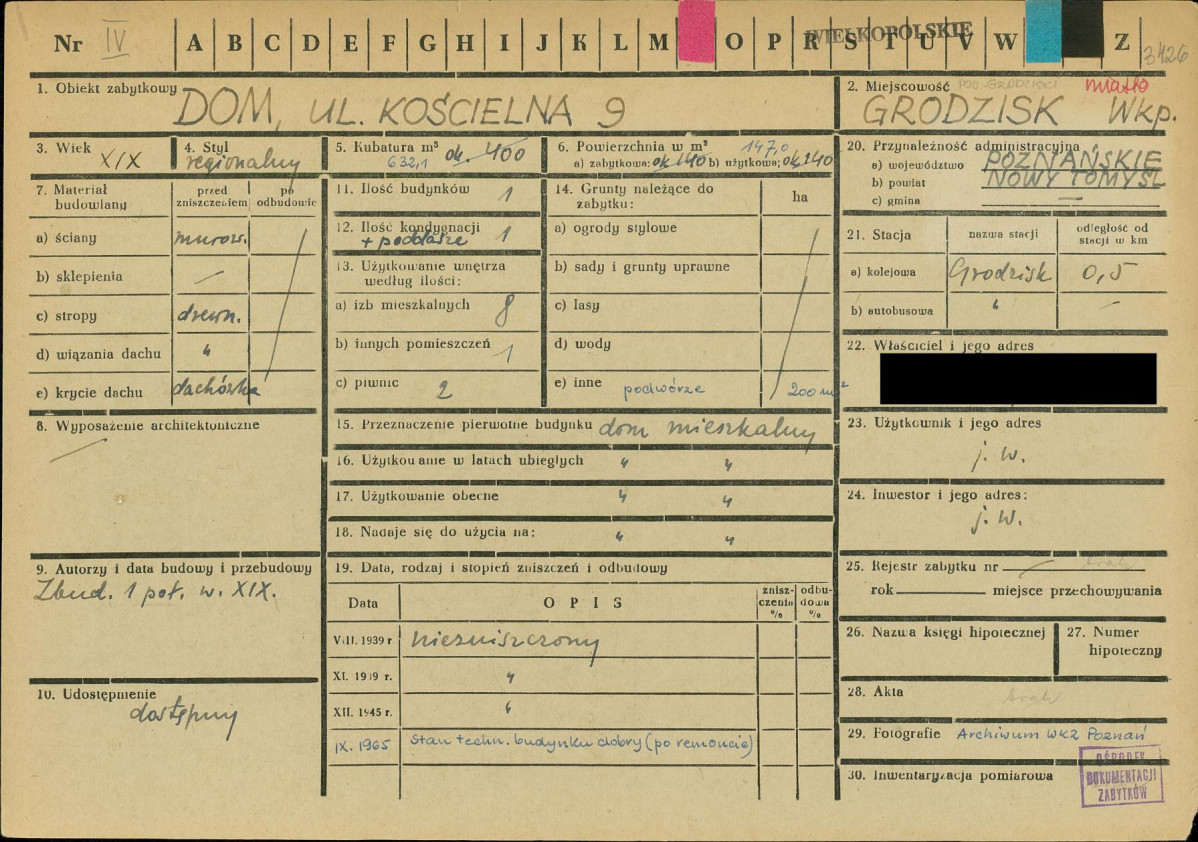 Nr IV A B C D E F G H I J K L M O P R S T U V W Z
WIELKOPOLSKIE
3426
1. Obiekt zabytkowy
DOM, UL. KOŚCIELNA 9
2. Miejscowość
miasto
GRODZISK Wkp.
3. Wiek
XIX
4. Styl
regionalny
5. Kubatura m³
632,1 ok. 400
6. Powierzchnia w m²
147,0
a) zabytkowa: ok 140 b) użytkowa: ok 240
20. Przynależność administracyjna
a) województwo POZNAŃSKIE
b) powiat NOWY TOMYŚL
c) gmina —
7. Materiał budowlany
przed zniszczeniem
po odbudowie
a) ściany murow.
b) sklepienia —
c) stropy drewn.
d) wiązania dachu "
e) krycie dachu dachówka
11. Ilość budynków 1
12. Ilość kondygnacji 1
+ poddasze
13. Użytkowanie wnętrza według ilości:
a) izb mieszkalnych 8
b) innych pomieszczeń 1
c) piwnic 2
14. Grunty należące do zabytku:
ha
a) ogrody stylowe
b) sady i grunty uprawne
c) lasy
d) wody
e) inne podwórze 200 m²
21. Stacja
nazwa stacji
odległość od stacji w km
a) kolejowa Grodzisk 0,5
b) autobusowa " —
22. Właściciel i jego adres
23. Użytkownik i jego adres
j. w.
24. Inwestor i jego adres:
j. w.
8. Wyposażenie architektoniczne
—
15. Przeznaczenie pierwotne budynku dom mieszkalny
16. Użytkowanie w latach ubiegłych " "
17. Użytkowanie obecne " "
18. Nadaje się do użycia na: " "
9. Autorzy i data budowy i przebudowy
Zbud. 1 poł. w. XIX.
10. Udostępnienie
dostępny
19. Data, rodzaj i stopień zniszczeń i odbudowy
Data
OPIS
zniszczenia %
odbudowa %
VIII. 1939 r niezniszczony
XI. 1939 r. "
XII. 1945 r. "
IX. 1965 Stan techn. budynku dobry (po remoncie)
25. Rejestr zabytku nr brak
rok miejsce przechowywania
26. Nazwa księgi hipotecznej
27. Numer hipoteczny
28. Akta brak
29. Fotografie Archiwum WKZ Poznań
30. Inwentaryzacja pomiarowa
OŚRODEK
DOKUMENTACJI
ZABYTKÓW